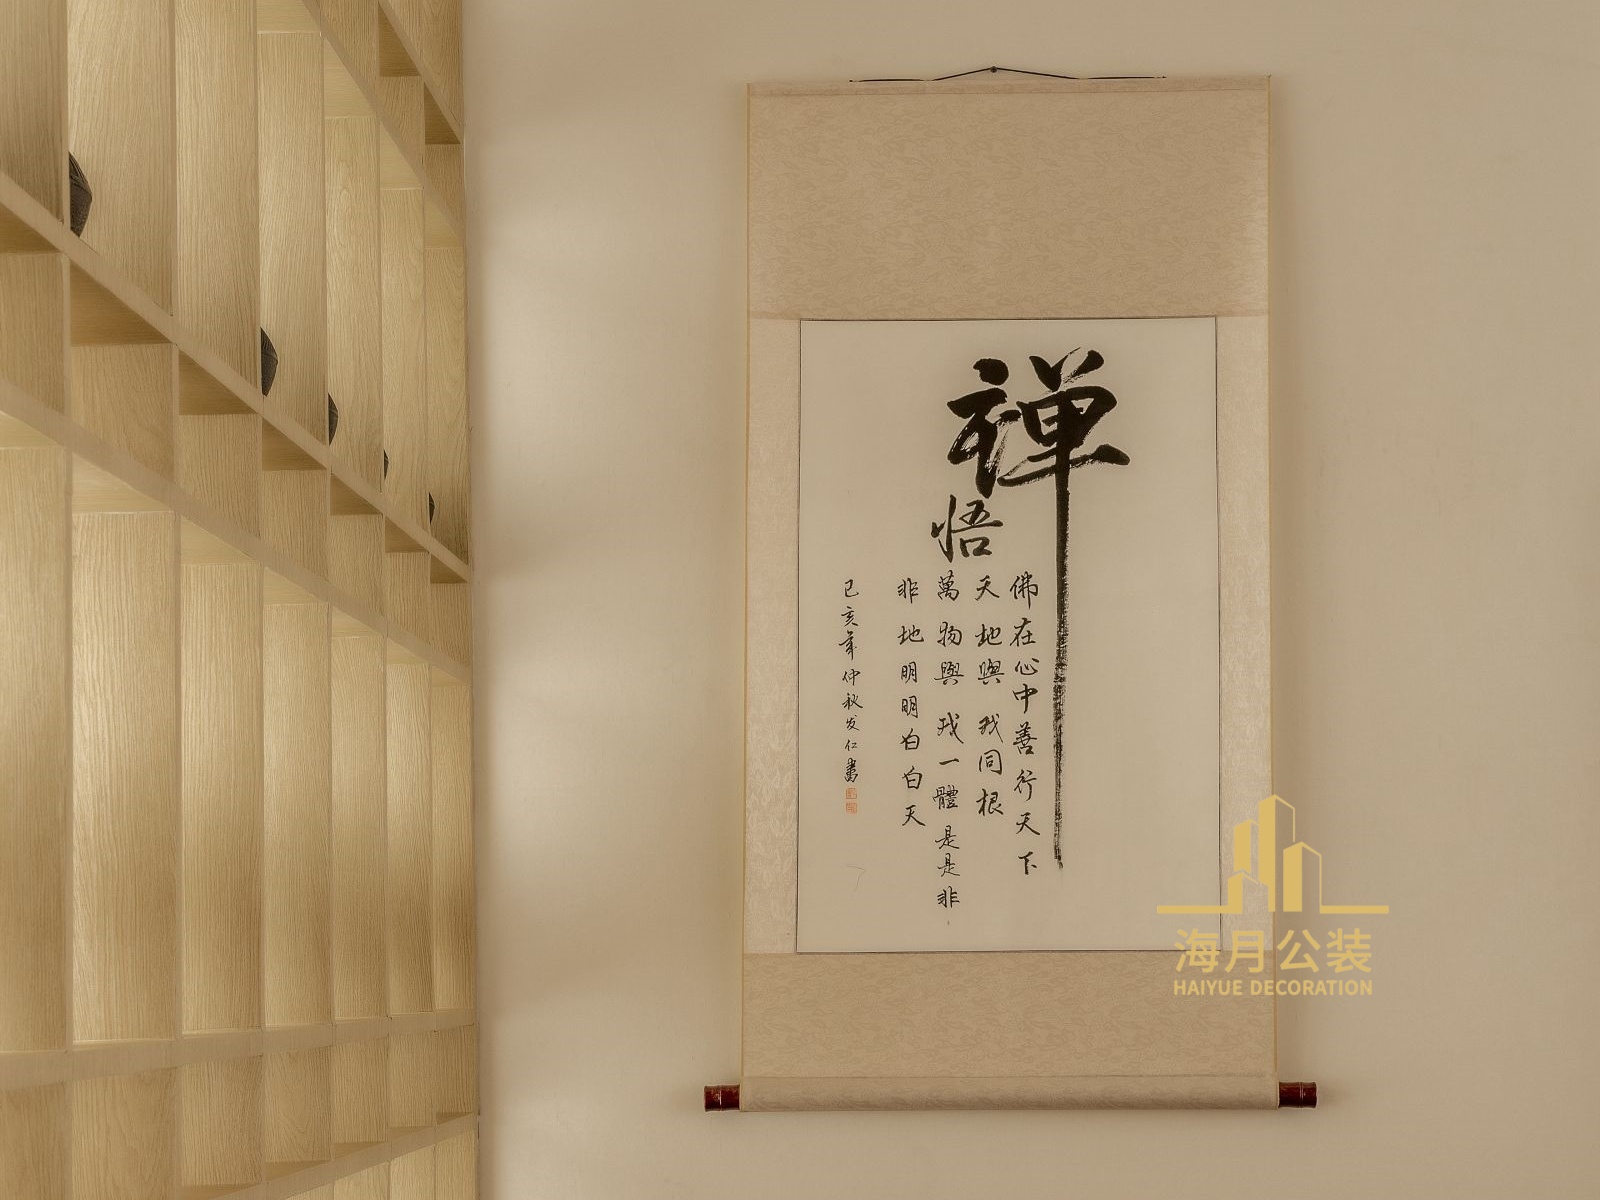 禅
悟
佛在心中善行天下
天地與我同根
萬物與我一體是是非
非地明明白白天
己亥年仲秋发仁書
海月公装
HAIYUE DECORATION